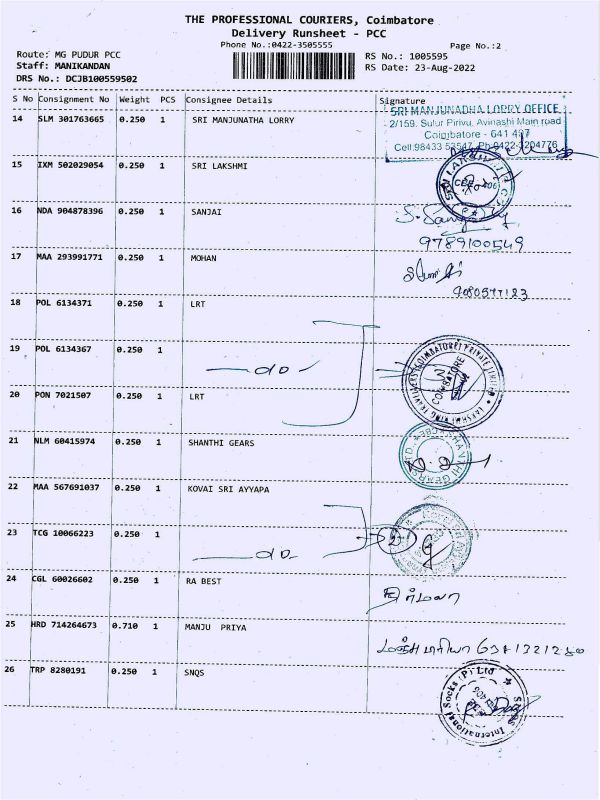 THE PROFESSIONAL COURIERS, Coimbatore
Delivery Runsheet - PCC
Phone No.:0422-3505555
Page No.:2
Route: MG PUDUR PCC
RS No.: 1005595
Staff: MANIKANDAN
RS Date: 23-Aug-2022
DRS No.: DCJB100559502
S No Consignment No Weight PCS Consignee Details Signature
14 SLM 301763665 0.250 1 SRI MANJUNATHA LORRY
SRI MANJUNADHA LORRY OFFICE
2/159, Sulur Pirivu, Avinashi Main road
Coimbatore - 641 407
Cell:98433 53547, Ph:0422-3204776
15 IXM 502029054 0.250 1 SRI LAKSHMI
16 NDA 904878396 0.250 1 SANJAI
9789100549
17 MAA 293991771 0.250 1 MOHAN
18 POL 6134371 0.250 1 LRT
19 POL 6134367 0.250 1
-do-
COIMBATORE
20 PON 7021507 0.250 1 LRT
21 NLM 60415974 0.250 1 SHANTHI GEARS
22 MAA 567691037 0.250 1 KOVAI SRI AYYAPA
23 TCG 10066223 0.250 1
-do-
24 CGL 60026602 0.250 1 RA BEST
நிர்மலா
25 HRD 714264673 0.710 1 MANJU PRIYA
மஞ்சு பிரியா
26 TRP 8280191 0.250 1 SNQS
SNQS International Socks (P) Ltd